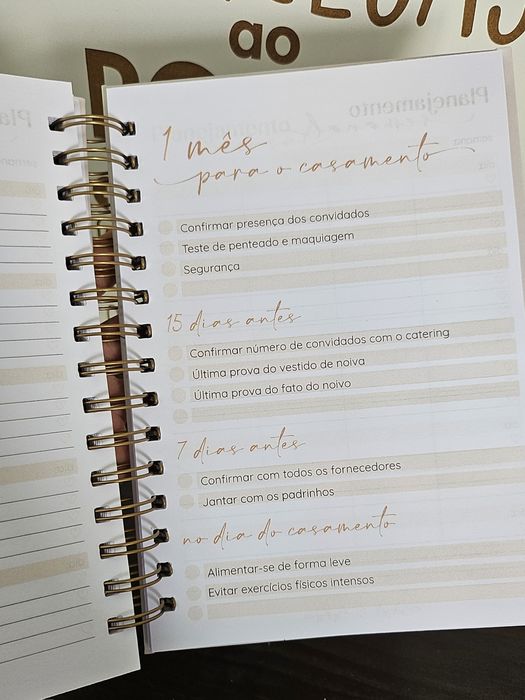 ao
1 mês
para o casamento
Confirmar presença dos convidados
Teste de penteado e maquiagem
Segurança
15 dias antes
Confirmar número de convidados com o catering
Última prova do vestido de noiva
Última prova do fato do noivo
7 dias antes
Confirmar com todos os fornecedores
Jantar com os padrinhos
no dia do casamento
Alimentar-se de forma leve
Evitar exercícios físicos intensos